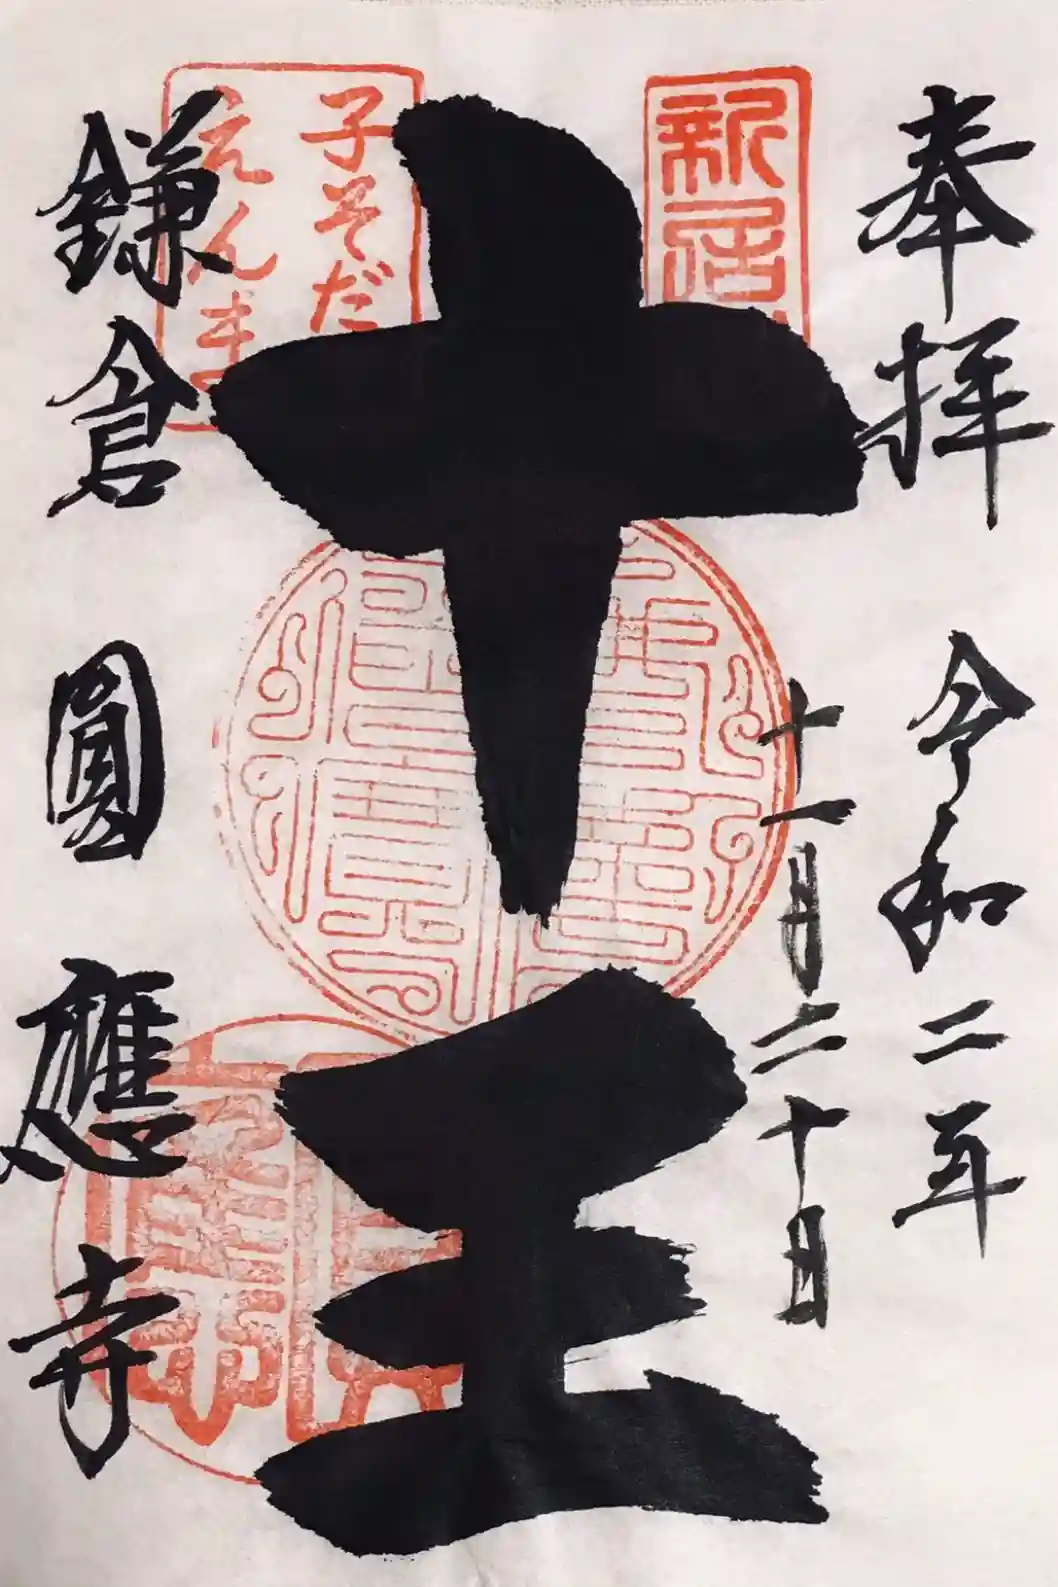 奉拝
令和二年
十一月二十日
十王
鎌倉
圓應寺
新居
子そだ
えんま